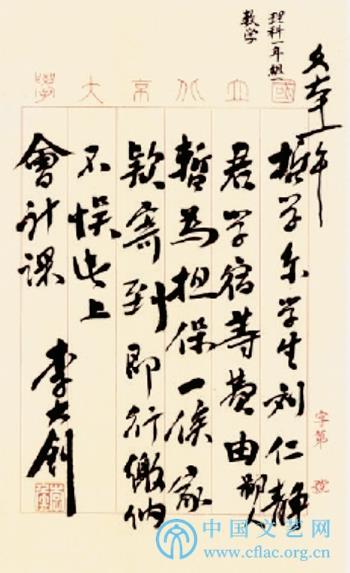 理科一年組
数学
國立北京大學
哲学系学生刘仁静
君学宿等费由鄙人
暫为担保一俟家
欵寄到即行缴纳
不悮此上
會计课
李大钊
字第 號
中国文艺网
www.cflac.org.cn